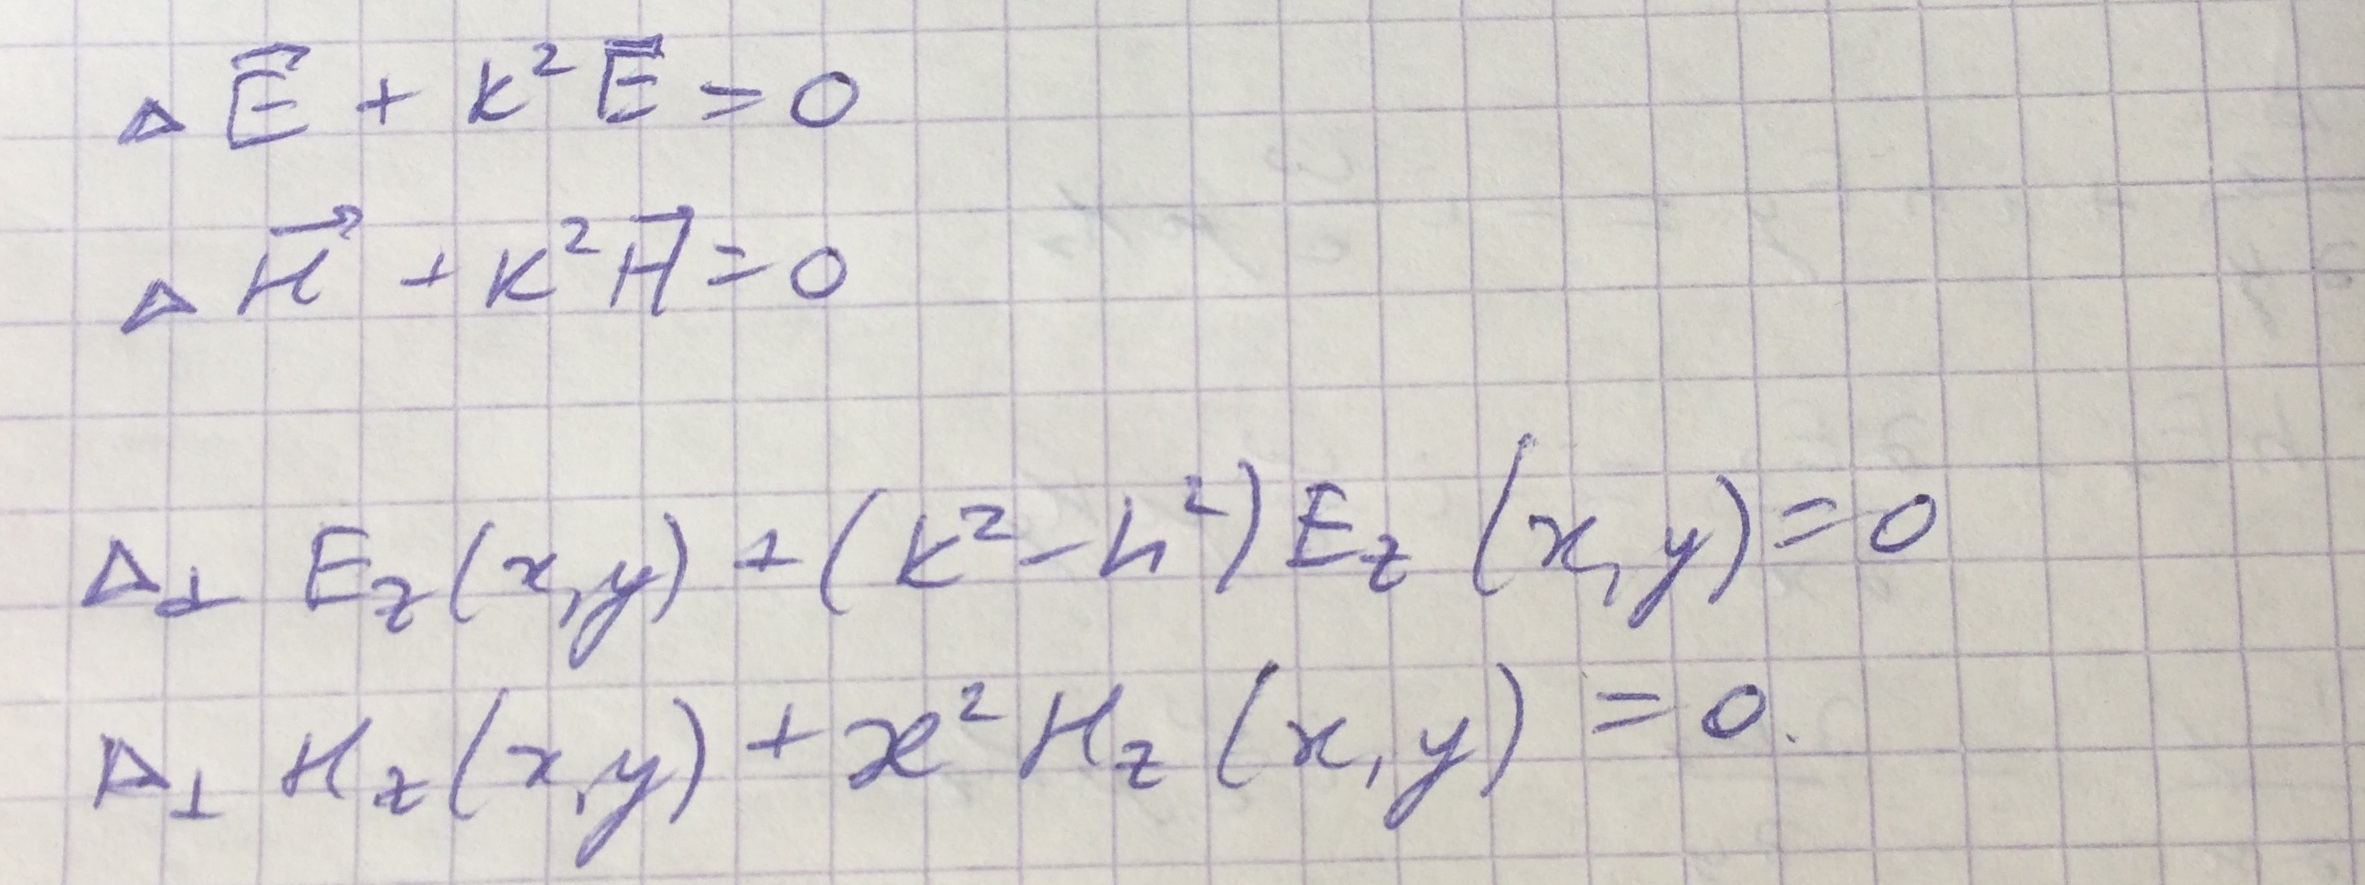 Δ E⃗ + k² E⃗ = 0
Δ H⃗ + k² H⃗ = 0
Δ⊥ E_z (x,y) + (k² − h²) E_z (x,y) = 0
Δ⊥ H_z (x,y) + æ² H_z (x,y) = 0.